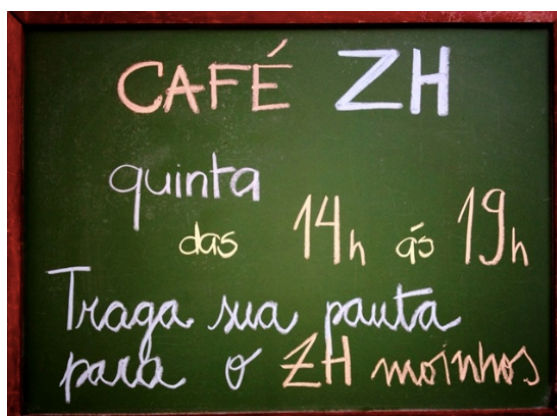 CAFÉ ZH
quinta
das 14h ás 19h
Traga sua pauta
para o ZH moinhos